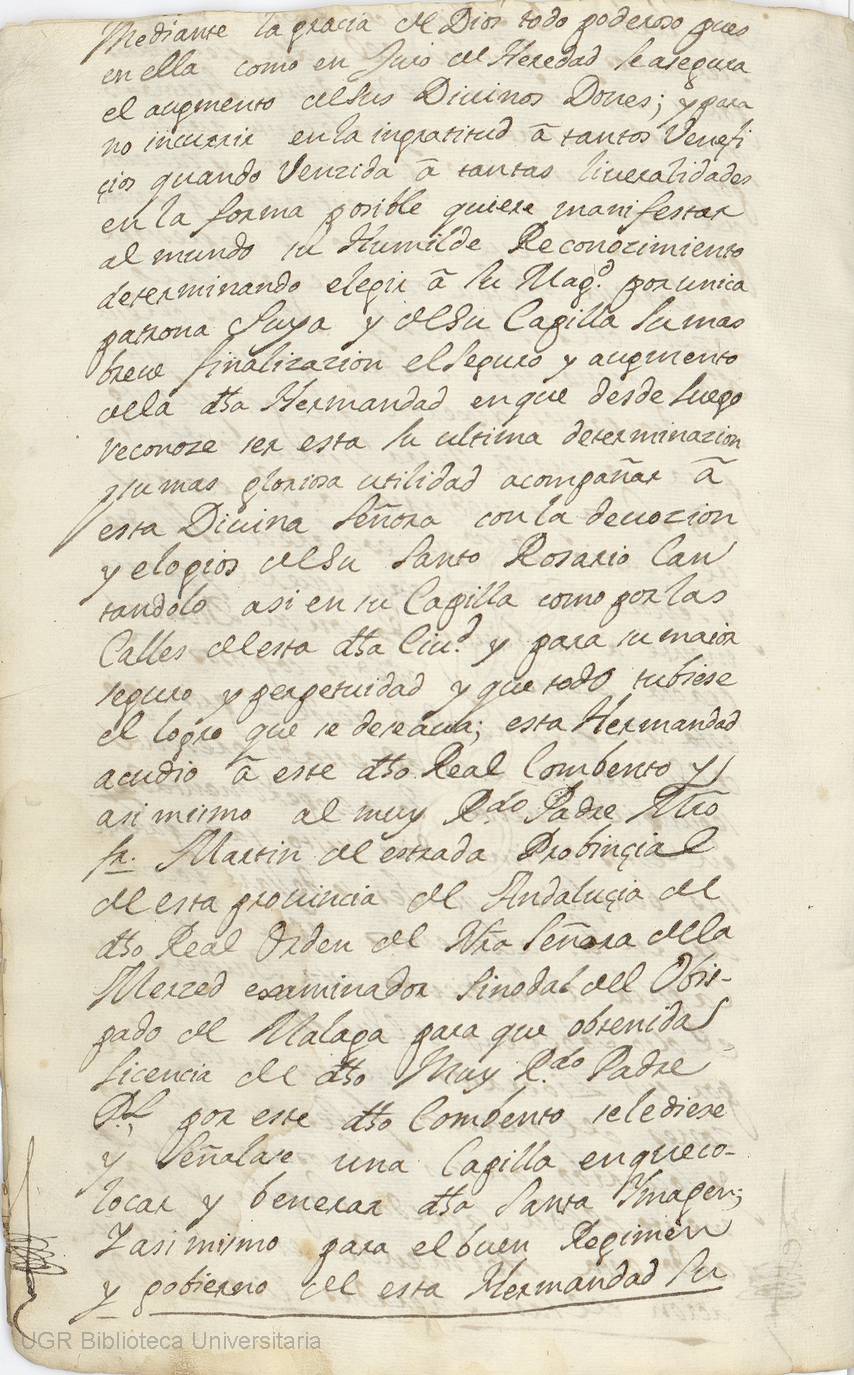 Mediante la gracia de Dios todo poderoso pues
en ella como en Juro de Heredad se asegura
el augmento de sus Diuinos Dones; y para
no incurrir en la ingratitud â tantos Venefi
çios quando Venzida â tantas liueralidades
en la forma posible quiere manifestar
al mundo su Humilde Reconozimiento
determinando elegir â su Mag.d por unica
patrona Suya y de Su Capilla su mas
breue finalizazion el seguro y augmento
de la dha Hermandad en que desde luego
reconoze ser esta su ultima determinazion
y su mas gloriosa utilidad acompañar â
esta Diuina Señora con la deuozion
y elogios de Su Santo Rosario Can
tandolo asi en su Capilla como por las
Calles de esta dha Ciu.d y para su maior
seguro y perpetuidad y que todo tubiese
el logro que se deseaua; esta Hermandad
acudio â este dho Real Combento y
asi mismo al muy R.do Padre Mro
fr. Martin de estrada Probinçial
de esta prouincia de Andaluçia de
dho Real Orden de Nra Señora de la
Merzed examinador Sinodal del Obis-
pado de Malaga para que obtenida
licencia de dho Muy R.do Padre
P.l por este dho Combento se le diese
y Señalase una Capilla en que co-
locar y benerar dha Santa Ymagen;
Y asi mismo para el buen Regimen
y gobierno de esta Hermandad Su
UGR Biblioteca Universitaria